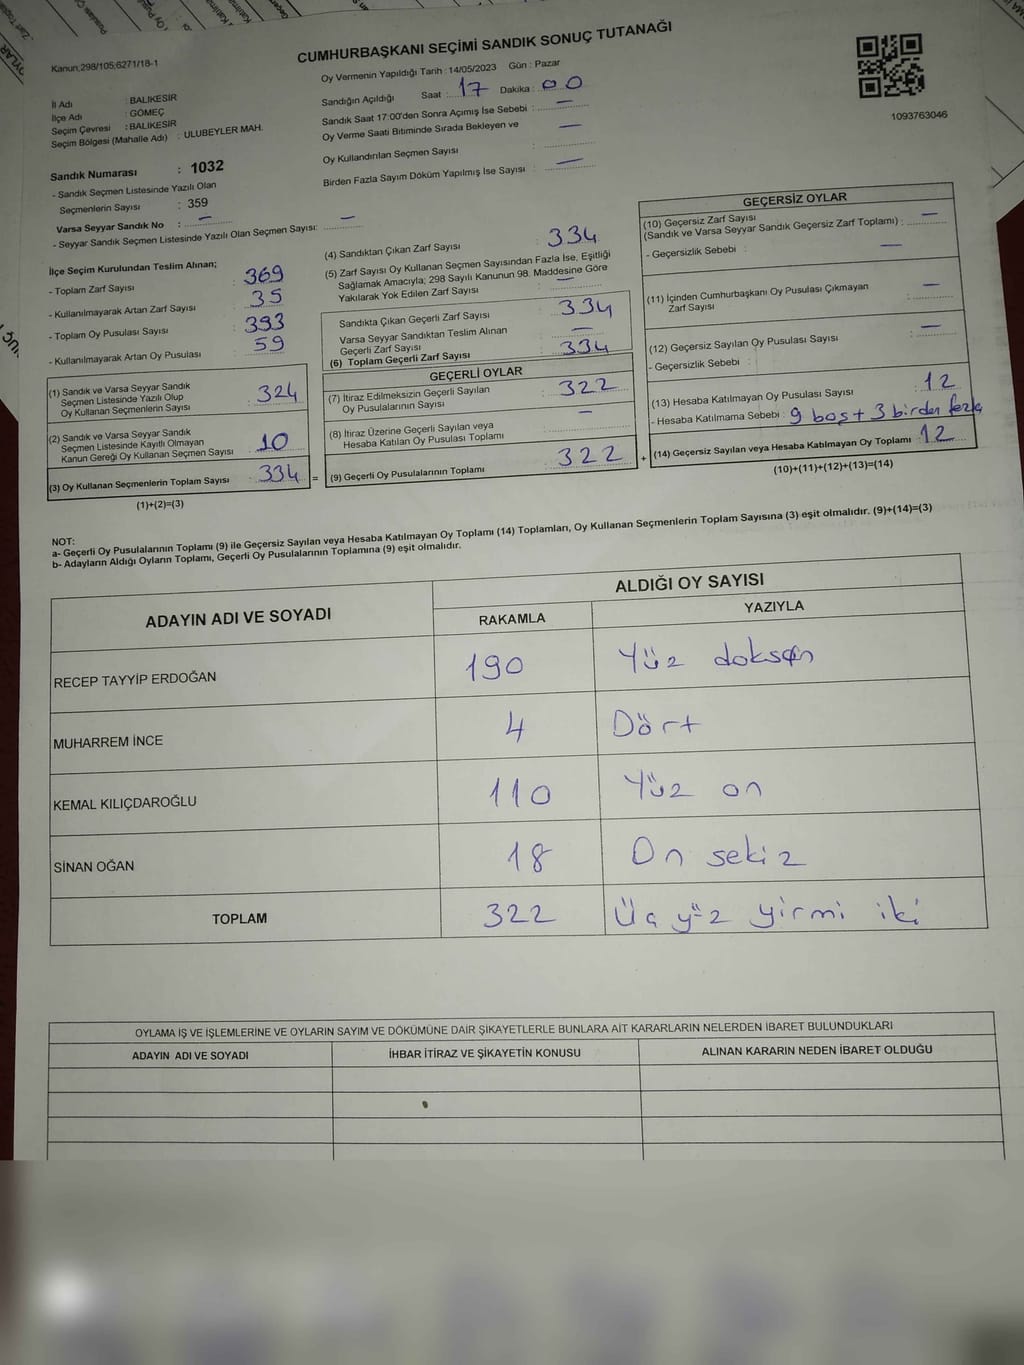 CUMHURBAŞKANI SEÇİMİ SANDIK SONUÇ TUTANAĞI
Kanun;298/105;6271/18-1
İl Adı : BALIKESİR
İlçe Adı : GÖMEÇ
Seçim Çevresi : BALIKESİR
Seçim Bölgesi (Mahalle Adı) : ULUBEYLER MAH.
Sandık Numarası : 1032
- Sandık Seçmen Listesinde Yazılı Olan
Seçmenlerin Sayısı : 359
Varsa Seyyar Sandık No : —
- Seyyar Sandık Seçmen Listesinde Yazılı Olan Seçmen Sayısı: —
Oy Vermenin Yapıldığı Tarih : 14/05/2023 Gün : Pazar
Sandığın Açıldığı Saat : 17 Dakika : 00
Sandık Saat 17:00'den Sonra Açımış İse Sebebi : —
Oy Verme Saati Bitiminde Sırada Bekleyen ve —
Oy Kullandırılan Seçmen Sayısı :
Birden Fazla Sayım Döküm Yapılmış İse Sayısı : —
1093763046
İlçe Seçim Kurulundan Teslim Alınan;
- Toplam Zarf Sayısı : 369
- Kullanılmayarak Artan Zarf Sayısı : 35
- Toplam Oy Pusulası Sayısı : 393
- Kullanılmayarak Artan Oy Pusulası : 59
(1) Sandık ve Varsa Seyyar Sandık
Seçmen Listesinde Yazılı Olup
Oy Kullanan Seçmenlerin Sayısı : 324
(2) Sandık ve Varsa Seyyar Sandık
Seçmen Listesinde Kayıtlı Olmayan
Kanun Gereği Oy Kullanan Seçmen Sayısı : 10
(3) Oy Kullanan Seçmenlerin Toplam Sayısı : 334 =
(1)+(2)=(3)
(4) Sandıktan Çıkan Zarf Sayısı : 334
(5) Zarf Sayısı Oy Kullanan Seçmen Sayısından Fazla İse, Eşitliği
Sağlamak Amacıyla; 298 Sayılı Kanunun 98. Maddesine Göre
Yakılarak Yok Edilen Zarf Sayısı : —
Sandıkta Çıkan Geçerli Zarf Sayısı : 334
Varsa Seyyar Sandıktan Teslim Alınan
Geçerli Zarf Sayısı : —
(6) Toplam Geçerli Zarf Sayısı : 334
GEÇERLİ OYLAR
(7) İtiraz Edilmeksizin Geçerli Sayılan
Oy Pusulalarının Sayısı : 322
(8) İtiraz Üzerine Geçerli Sayılan veya
Hesaba Katılan Oy Pusulası Toplamı : —
(9) Geçerli Oy Pusulalarının Toplamı : 322 +
GEÇERSİZ OYLAR
(10) Geçersiz Zarf Sayısı
(Sandık ve Varsa Seyyar Sandık Geçersiz Zarf Toplamı) : —
- Geçersizlik Sebebi : —
(11) İçinden Cumhurbaşkanı Oy Pusulası Çıkmayan
Zarf Sayısı : —
(12) Geçersiz Sayılan Oy Pusulası Sayısı : —
- Geçersizlik Sebebi :
(13) Hesaba Katılmayan Oy Pusulası Sayısı : 12
- Hesaba Katılmama Sebebi : 9 boş+3 birden fazla
(14) Geçersiz Sayılan veya Hesaba Katılmayan Oy Toplamı : 12
(10)+(11)+(12)+(13)=(14)
NOT:
a- Geçerli Oy Pusulalarının Toplamı (9) ile Geçersiz Sayılan veya Hesaba Katılmayan Oy Toplamı (14) Toplamları, Oy Kullanan Seçmenlerin Toplam Sayısına (3) eşit olmalıdır. (9)+(14)=(3)
b- Adayların Aldığı Oyların Toplamı, Geçerli Oy Pusulalarının Toplamına (9) eşit olmalıdır.
ADAYIN ADI VE SOYADI ALDIĞI OY SAYISI
RAKAMLA YAZIYLA
RECEP TAYYİP ERDOĞAN 190 Yüz doksan
MUHARREM İNCE 4 Dört
KEMAL KILIÇDAROĞLU 110 Yüz on
SİNAN OĞAN 18 On sekiz
TOPLAM 322 Üç yüz yirmi iki
OYLAMA İŞ VE İŞLEMLERİNE VE OYLARIN SAYIM VE DÖKÜMÜNE DAİR ŞİKAYETLERLE BUNLARA AİT KARARLARIN NELERDEN İBARET BULUNDUKLARI
ADAYIN ADI VE SOYADI İHBAR İTİRAZ VE ŞİKAYETİN KONUSU ALINAN KARARIN NEDEN İBARET OLDUĞU